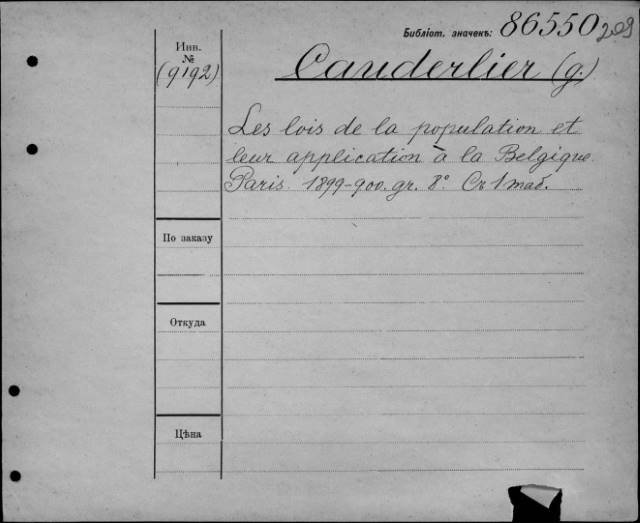 Библіот. значекъ: 86550 209
Инв.
№
(9192)
Cauderlier (g.)
Les lois de la population et
leur application à la Belgique.
Paris. 1899-900. gr. 8°. Съ 1 таб.
По заказу
Откуда
Цѣна